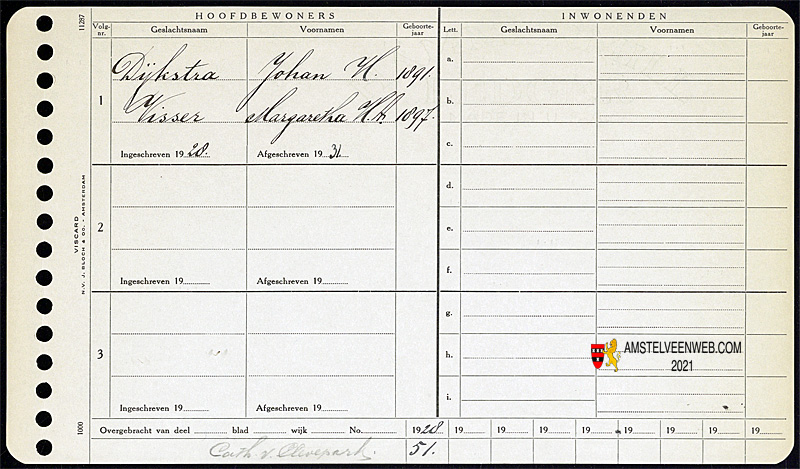 HOOFDBEWONERS
INWONENDEN
11287
Volg-nr.
Geslachtsnaam
Voornamen
Geboorte-jaar
Lett.
Geslachtsnaam
Voornamen
Geboorte-jaar
1
Dijkstra Johan H. 1891.
Visser Margaretha H.A. 1897.
Ingeschreven 1928. Afgeschreven 1931.
2
Ingeschreven 19 Afgeschreven 19
3
Ingeschreven 19 Afgeschreven 19
a.
b.
c.
d.
e.
f.
g.
h.
i.
VISCARD
N.V. J. BLOCH & CO. - AMSTERDAM
1000
AMSTELVEENWEB.COM
2021
Overgebracht van deel blad wijk No. 1928 19 19 19 19 19 19 19 19
Cath. v. Clevepark. 51.